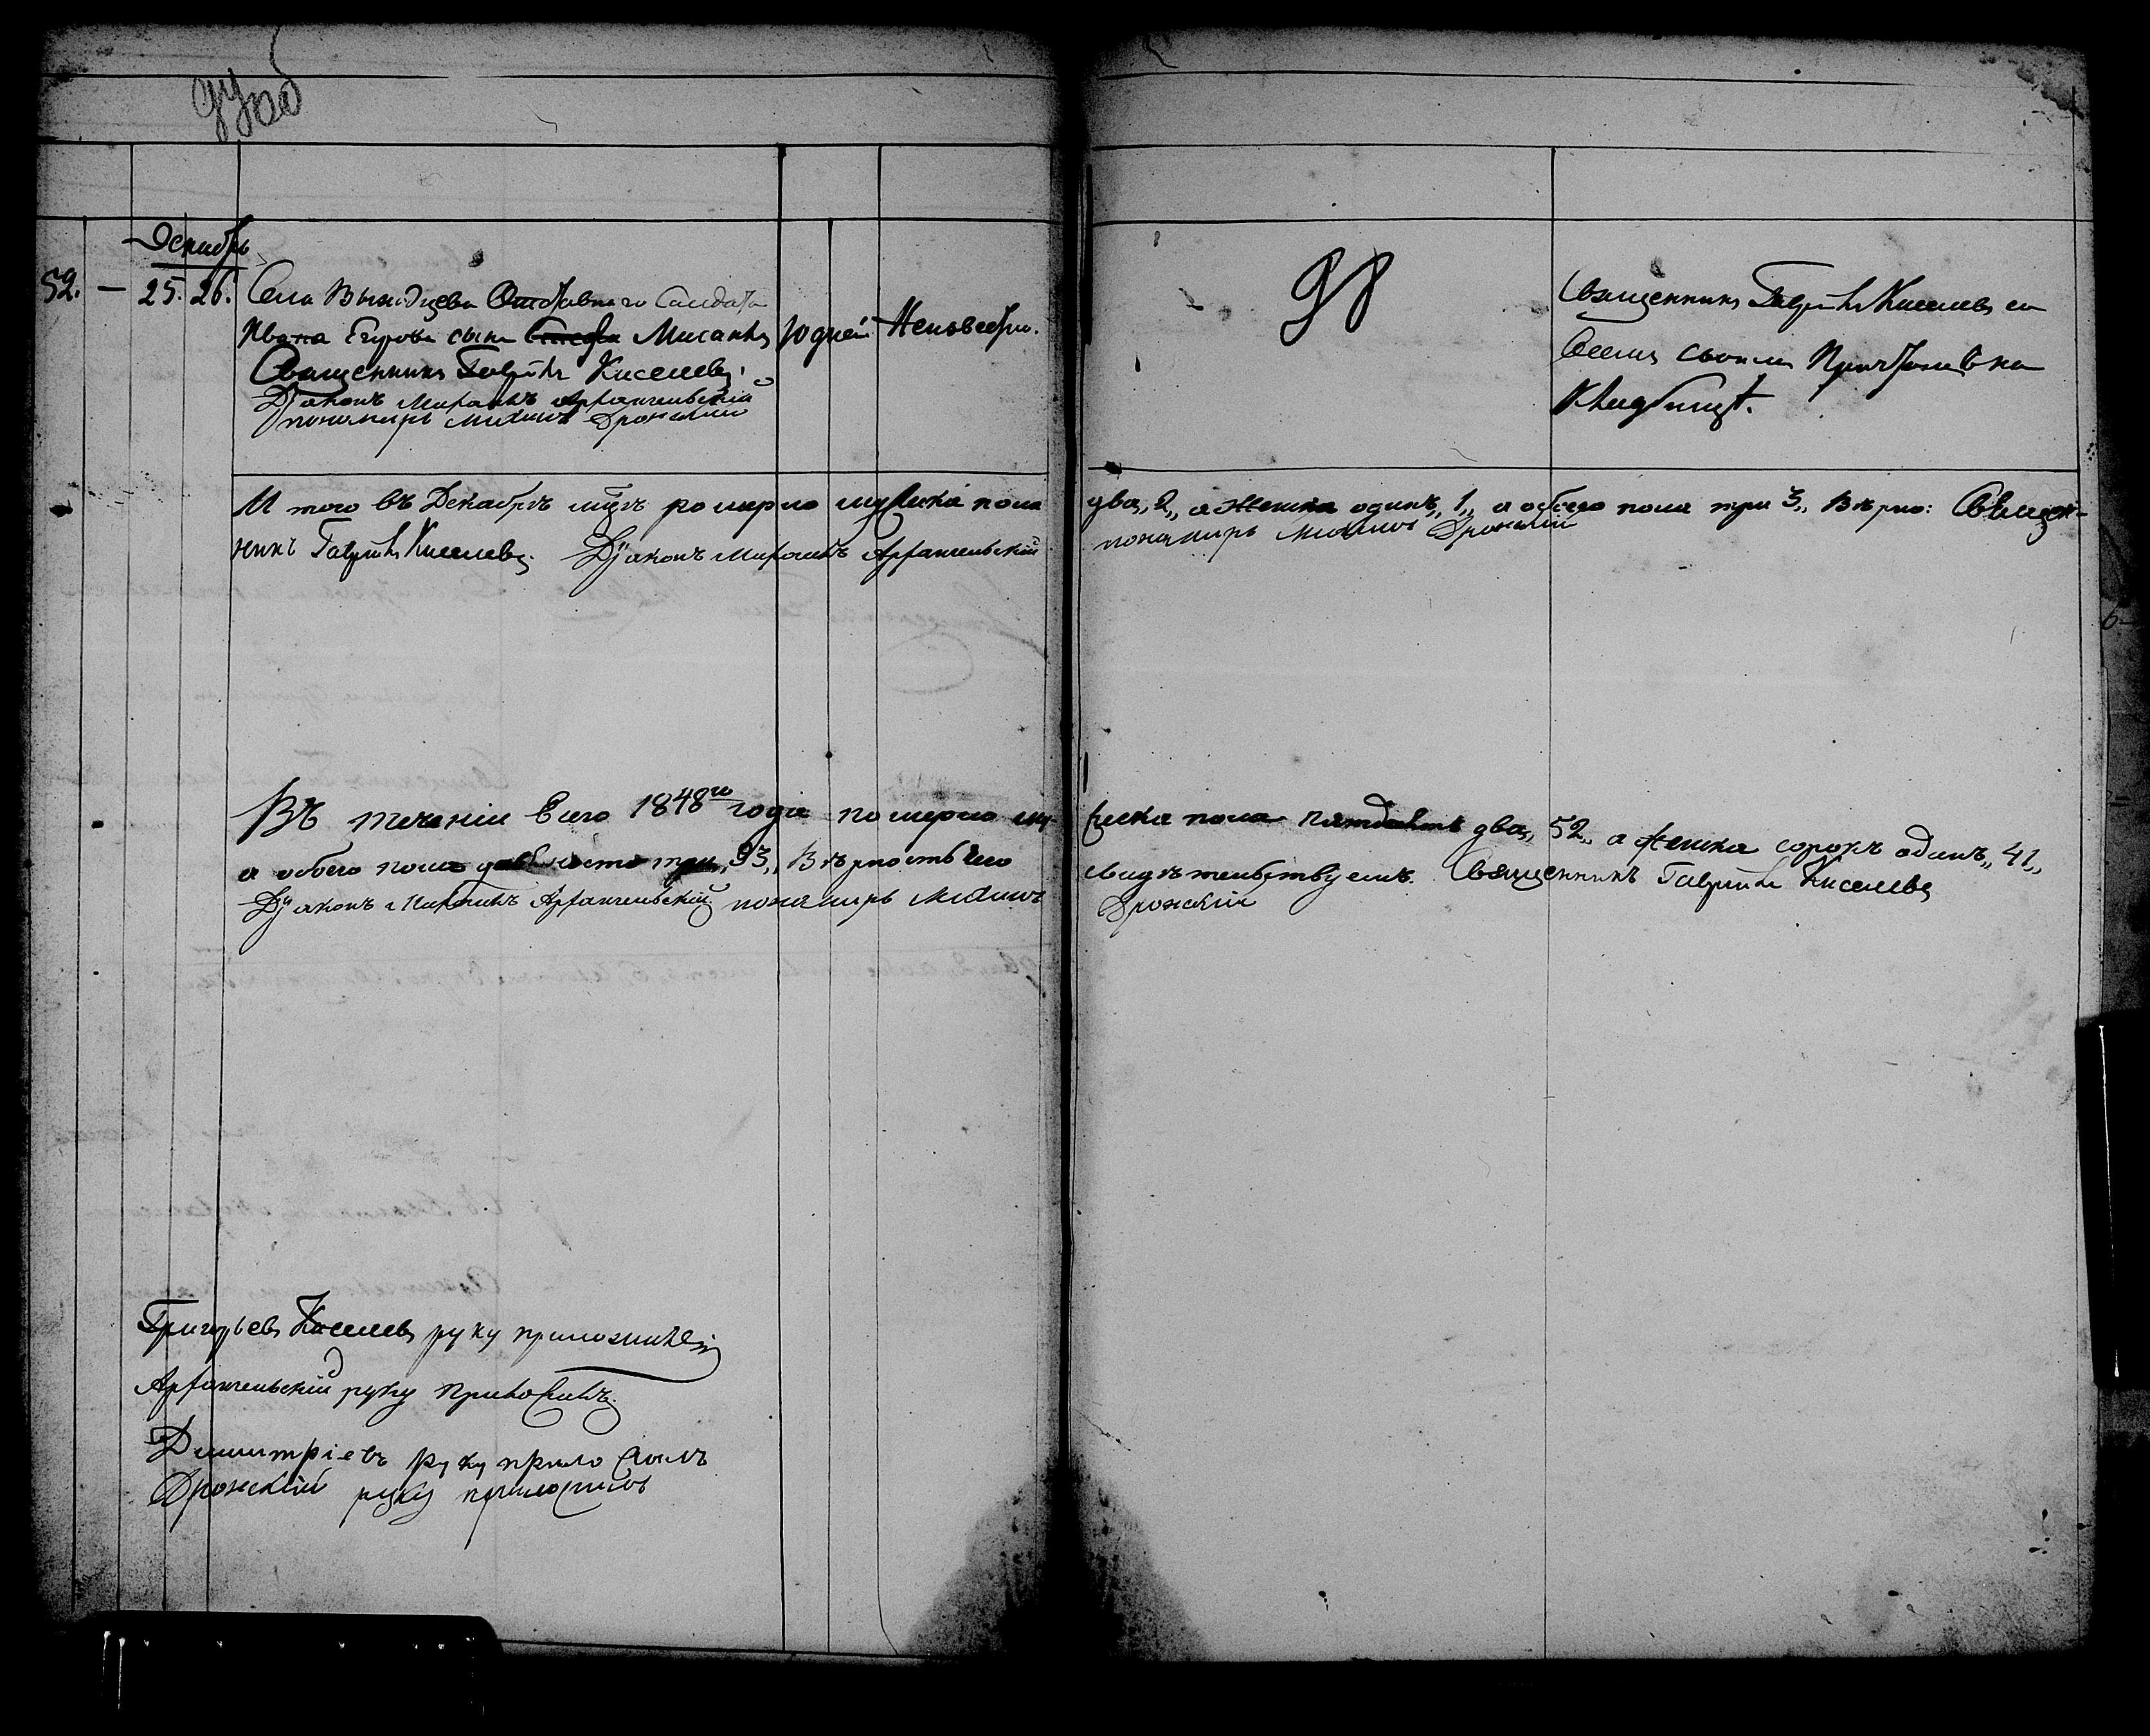 Декабрь
52. — 25. 26. Села Выходцева Отставнаго Салдата
Ивана Егорова сынъ Михаилъ 10 дней Неизвестно.
Священникъ Гавріилъ Киселевъ.
Діаконъ Михаилъ Архангельскій
пономарь Михаилъ Дронскій
Священникъ Гавріилъ Киселевъ со
всемъ своимъ Причтомъ на
Кладбищѣ.
И того въ Декабрѣ мцѣ померло мужска пола два „2„ а женска одинъ „1„ а обоего пола три 3„ Вѣрно: Священ-
никъ Гавріилъ Киселевъ. Діаконъ Михаилъ Архангельскій пономарь Михаилъ Дронскій
Въ теченіи Сего 1848го года померло мужска пола пятдесятъ два „52„ а женска сорокъ одинъ „41„
а обоего пола девяносто три „93„ Вѣрность чего свидѣтельствуемъ. Священникъ Гавріилъ Киселевъ
Діаконъ Михаилъ Архангельскій пономарь Михаилъ Дронскій
Григорьевъ Киселевъ руку приложилъ
Архангельскій руку приложилъ.
Димитріевъ руку приложилъ
Дронскій руку приложилъ